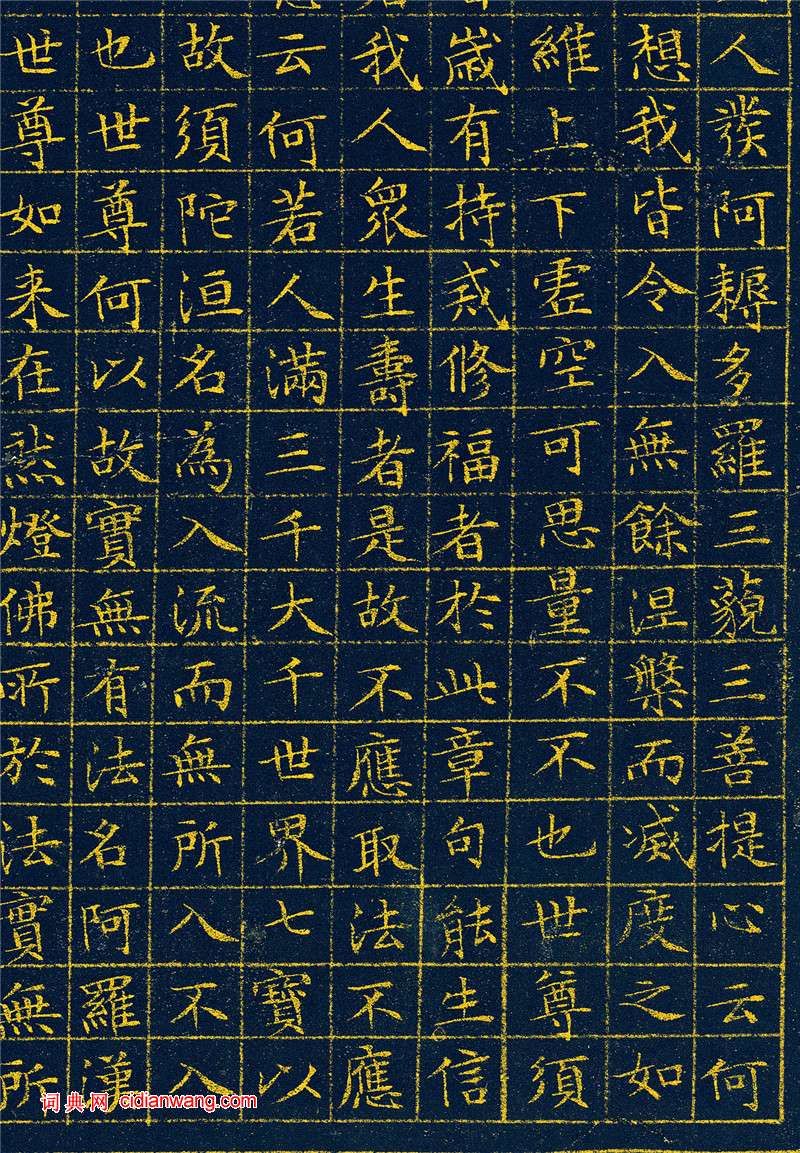 人發阿耨多羅三藐三菩提心云何
想我皆令入無餘涅槃而滅度之如
維上下虛空可思量不不也世尊須
歲有持戒修福者於此章句能生信
我人眾生壽者是故不應取法不應
云何若人滿三千大千世界七寶以
故須陀洹名為入流而無所入不入
也世尊何以故實無有法名阿羅漢
世尊如来在然燈佛所於法實無所
词典网 cidianwang.com